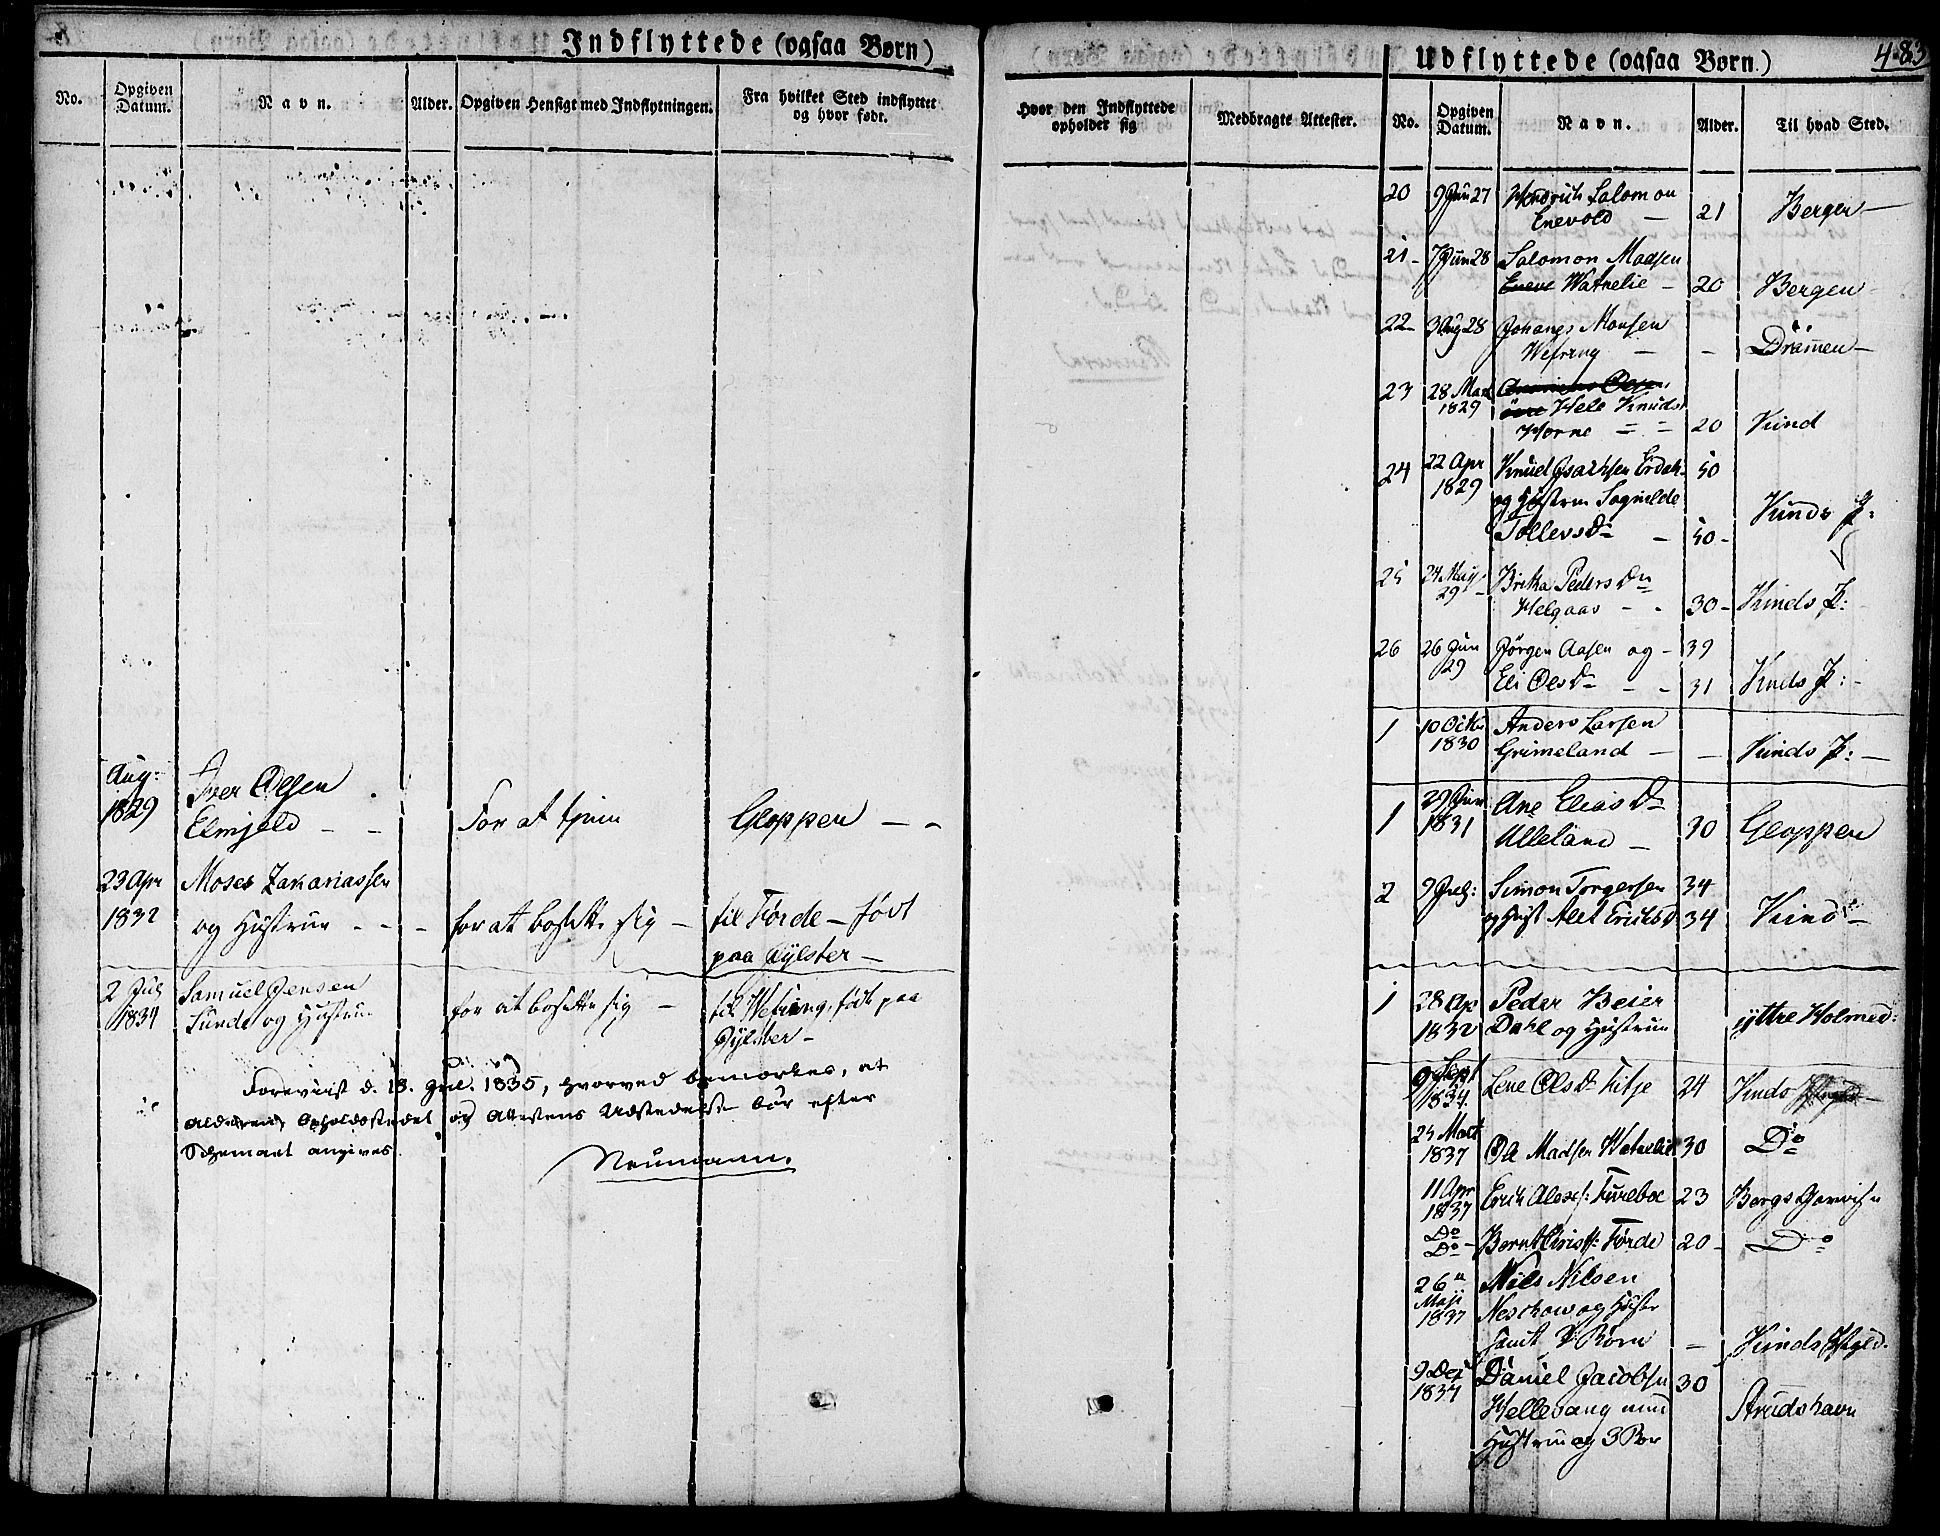 Indflyttede (ogsaa Børn)
No.
Opgiven
Datum.
Navn.
Alder.
Opgiven Hensigt med Indflytningen.
Fra hvilket Sted indflyttet
og hvor født.
Aug:
1829
Iver Olsen
Elmjeld - -
For at tjene
Gloppen - -
23 Apr
1832
Moses Zakariassen
og Hustrue - - -
for at bosette sig -
til Førde - født
paa Gylster -
2 Jul
1834
Samuel Jensen
Sunde og Hustrue
for at bosette sig -
til Wefring, født paa
Gylster -
Foreviist d. 18. 1835, hvorved bemærkes, at
Alderen, Opholdsstedet og Attestens Udstedelse bør efter
Schemaet angives.
Neumann.
Hvor den Indflyttede
opholder sig
Medbragte Attester.
Udflyttede (ogsaa Børn.)
483
No.
Opgiven
Datum.
Navn.
Alder.
Til hvad Sted.
20 9 Jun 27 Hendrich Salomon
Enevold - 21 Bergen -
21 - 7 Jun 28 Salomon Madsen
Eneve Watnelie - 20 Bergen -
22 - 3 Aug 28 Johanes Monsen
Wefring - - Drammen -
23 28 Mart
1829
Hele Knudsd
Horne = = 20 Kind
24 22 Apr
1829
Knud Isachsen Erdal 50
og Hustrue Sognilde
Tollevs Dr - 50 - Kinds P:
25 24 Maij
29 -
Britha Peders Dr
Helgaas - - 30 - Kinds P: -
26 26 Jun
29
Jørgen Aasen og - 39
Eli Ols Dr - - 31 Kinds P: -
1 10 Octbr
1830
Anders Larsen
Grimeland - - Kinds P: -
1 29 Jun
1831
Ane Elias Dr
Ulleland - 30 Gloppen
2 9 Jul: Simon Torgersen 34
og Hust Alet Erichsd 34 Kinds -
1 28 Ap
1832
Peder Beier
Dahl og Hustrue
yttre Holmed:
9 Sept
1834.
Lene Ols Dr Fitje 24 Kinds
25 Mart
1837
Ole Madsen Watnelie 30 Do
11 Apr
1837
Erich Alexs: Fureboe 23 Bergs Garnis:n
Do
Do -
Bernt Christ: Førde 20 - Do
26
Maji
1837
Niels Nilsen
Neschow og Hustr
samt Børn - Kinds Pstgld.
9 Dec
1837
Daniel Jacobsen 30
Hellevang med
Hustrue og 3 Bør
Strudshavn